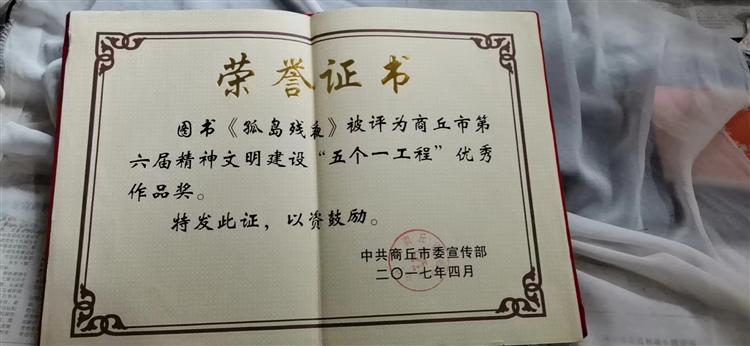 荣誉证书
图书《孤岛残夜》被评为商丘市第
六届精神文明建设“五个一工程”优秀
作品奖。
特发此证，以资鼓励。
中共商丘市委宣传部
二〇一七年四月